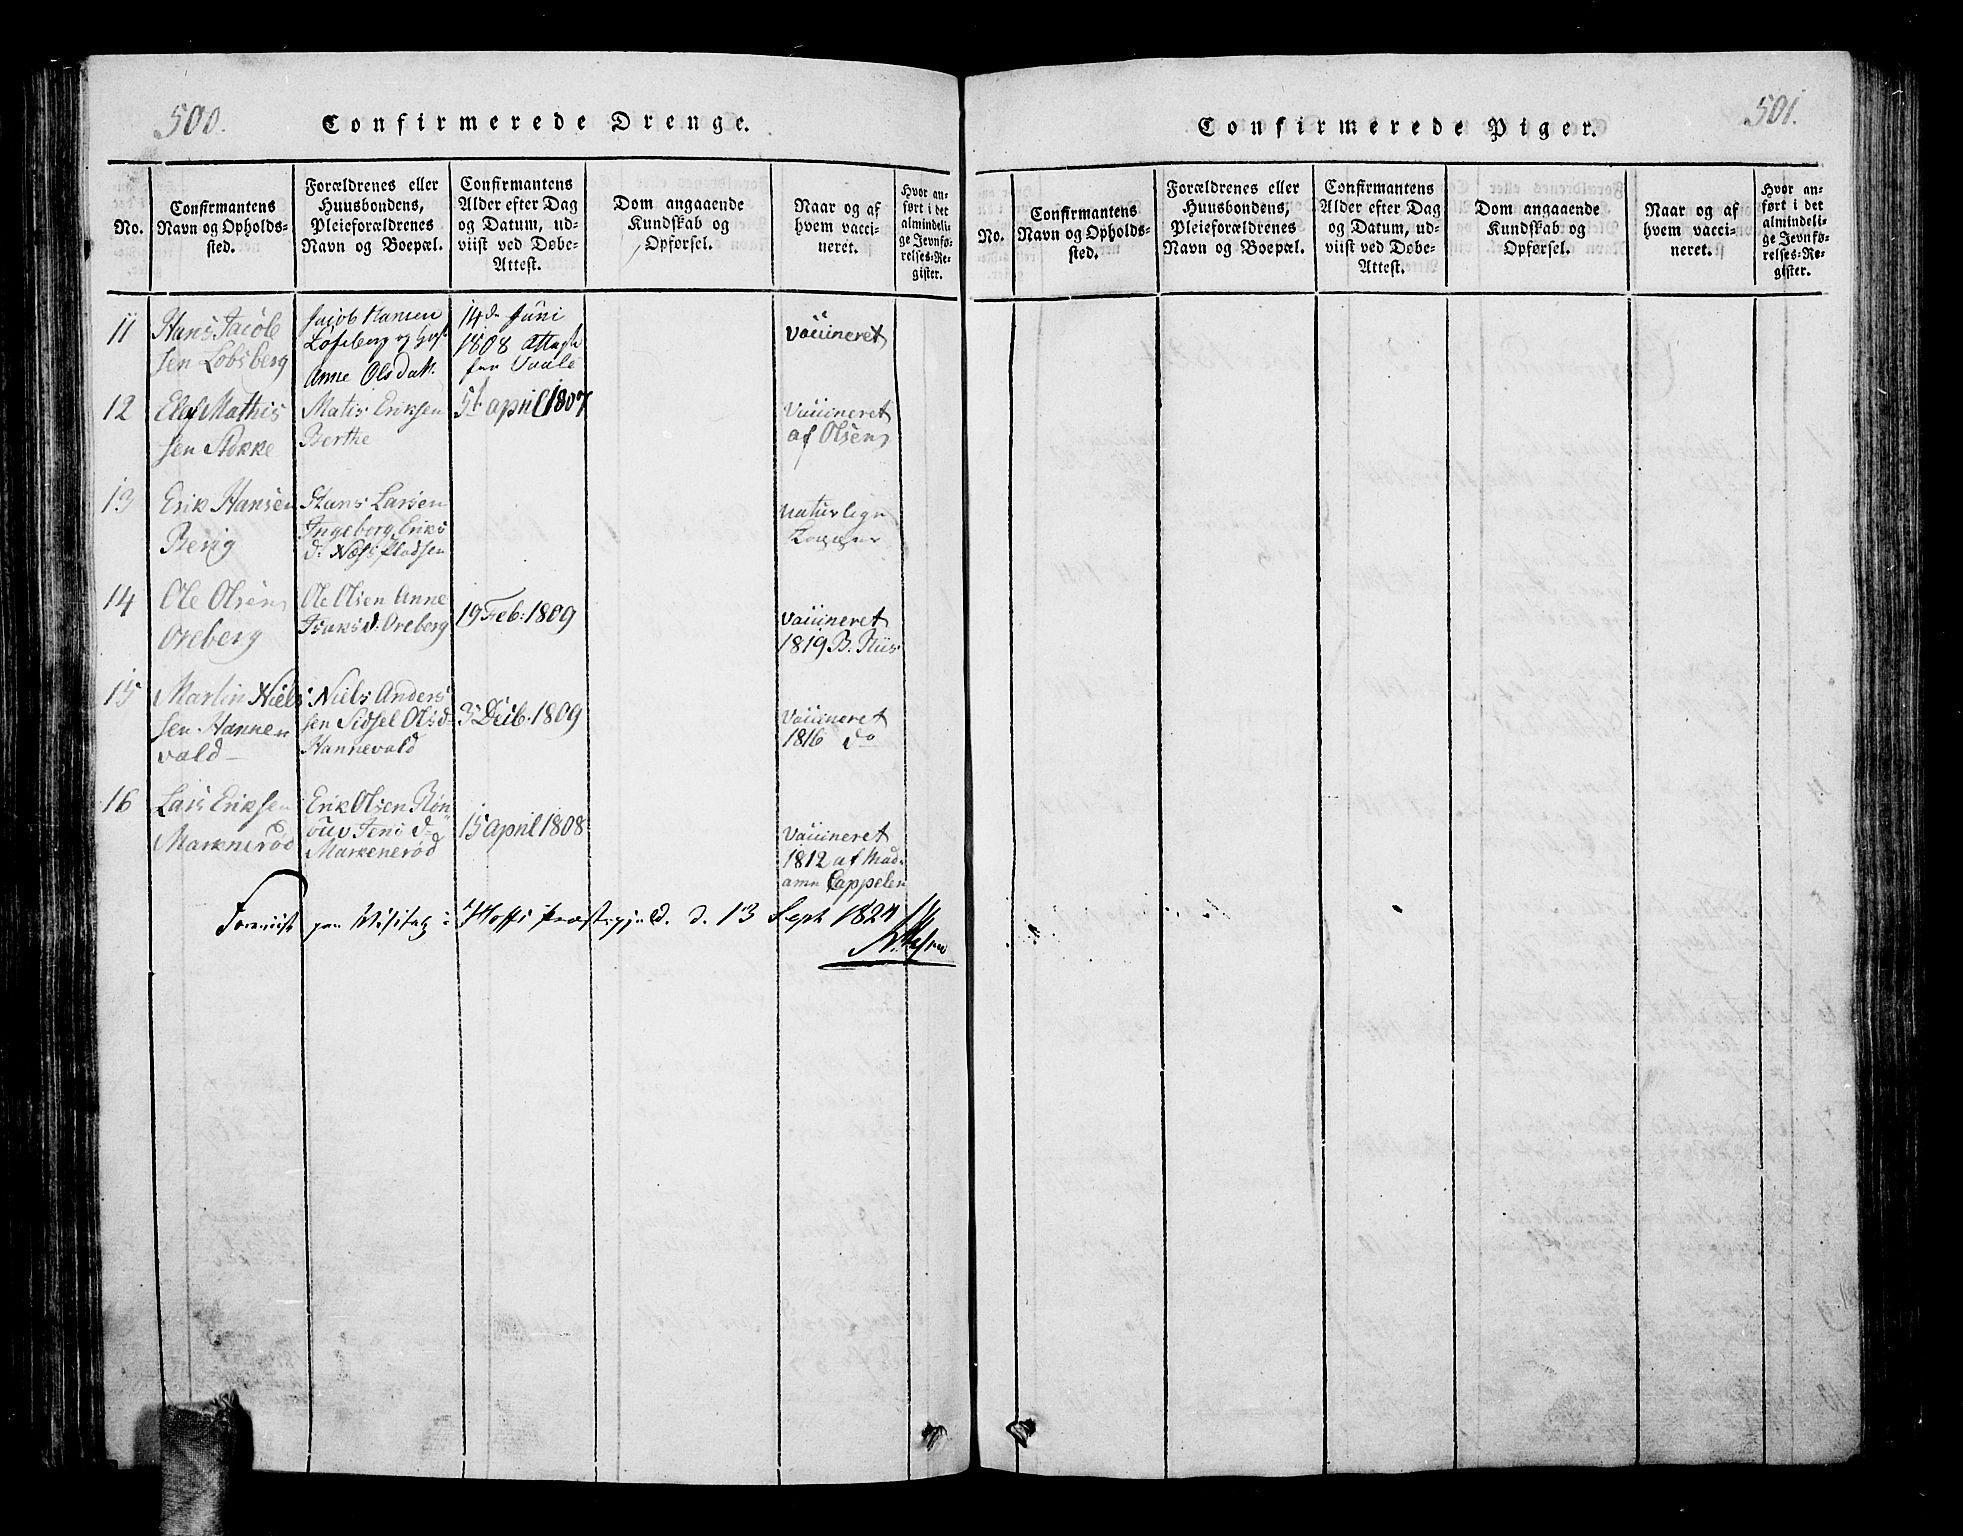 500.
Confirmerede Drenge.
No.
Confirmantens
Navn og Opholds-
sted.
Forældrenes eller
Huusbondens,
Pleieforældrenes
Navn og Boepæl.
Confirmantens
Alder efter Dag
og Datum, ud-
viist ved Døbe-
Attest.
Dom angaaende
Kundskab og
Opførsel.
Naar og af
hvem vacci-
neret.
Hvor an-
ført i det
almindeli-
ge Jevnfø-
relses-Re-
gister.
11
Hans Jacob
sen Løbsberg
Jacob Hansen
Løfsberg og
Anne Olsdatt.
14de Juni
1808
vaccineret
12
Mathis
sen Stokke
Matis Eriksen
Berthe
5t april 1807
Vaccineret
af Olsen
13
Erik Hansen
Berig
Hans Larsen
Ingeborg Eriks
d. Næss Pladsen
naturlige
Kopper
14
Ole Olsen
Oreberg
Ole Olsen Anne
Isaksd. Oreberg
19 Feb: 1809
Vaccineret
1819 B. Riis
15
Martin Niels
sen Hanne
vald
Niels Anders
sen Sidsel Olsd
Hannevald
3 Decb. 1809
Vaccineret
1816 do
16
Lars Eriksen
Markerød
Erik Olsen Røn
nouv Jens d
Markenerød
15 April 1808
Vaccineret
1812 af Mad-
am Cappelen
Foreviist paa Visitatz i Hoffs Præstegjeld. d. 13 Sept 1824
501.
Confirmerede Piger.
No.
Confirmantens
Navn og Opholds-
sted.
Forældrenes eller
Huusbondens,
Pleieforældrenes
Navn og Boepæl.
Confirmantens
Alder efter Dag
og Datum, ud-
viist ved Døbe-
Attest.
Dom angaaende
Kundskab og
Opførsel.
Naar og af
hvem vacci-
neret.
Hvor an-
ført i det
almindeli-
ge Jevnfø-
relses-Re-
gister.